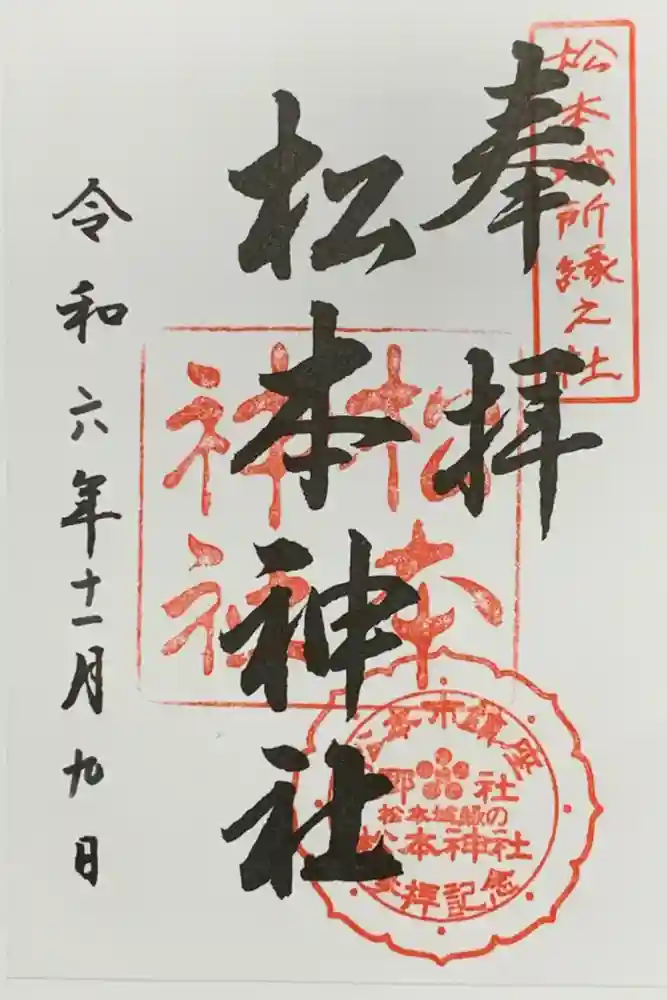 松本城所縁之社
奉拝
松本神社
令和六年十一月九日
松本
神社
松本市鎮座
郷社
松本城鎮の
松本神社
参拝記念